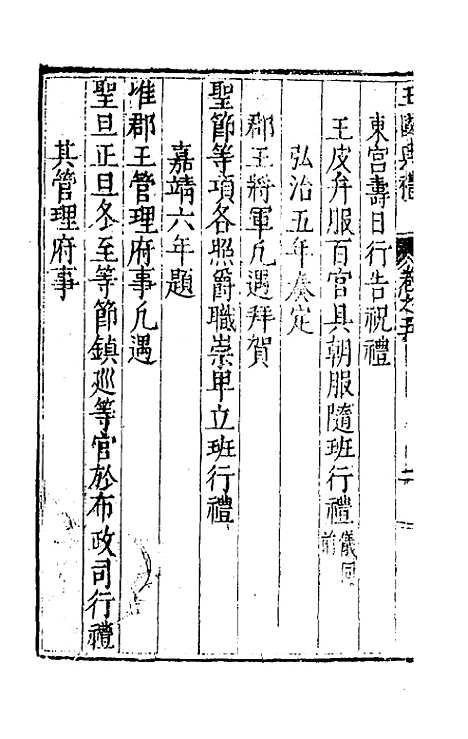 王國典禮 卷之五
東宮壽日行告祝禮
王皮弁服百官具朝服隨班行禮儀同前
弘治五年奏定
郡王將軍凡遇拜賀
聖節等項各照爵職崇卑立班行禮
嘉靖六年題
准郡王管理府事凡遇
聖旦正旦冬至等節鎮巡等官於布政司行禮
其管理府事